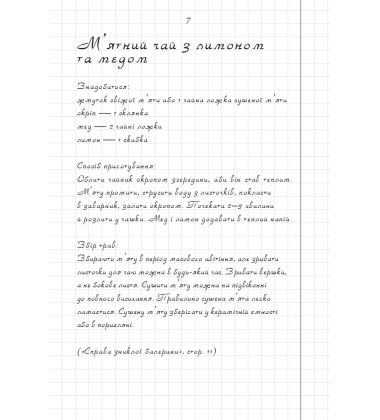 7
М'ятний чай з лимоном
та медом
Знадобиться:
жмуток свіжої м'яти або 1 чайна ложка сушеної м'яти
окріп — 1 склянка
мед — 2 чайні ложки
лимон — 1 скибка
Спосіб приготування:
Облити чайник окропом зсередини, аби він став теплим.
М'яту промити, струсити воду з листочків, покласти
в заварник, залити окропом. Почекати 2–3 хвилини
й розлити у чашки. Мед і лимон додавати в теплий напій.
Збір трав:
Збирають м'яту в період масового цвітіння, але зривати
листочки для чаю можна в будь-який час. Зривати вершки,
а не бокове листя. Сушити м'яту можна на підвіконні
до повного висихання. Правильно сушена м'ята легко
ламається. Сушену м'яту зберігати у керамічній ємності
або в порцеляні.
(«Справа зниклої балерини», стор. 11)